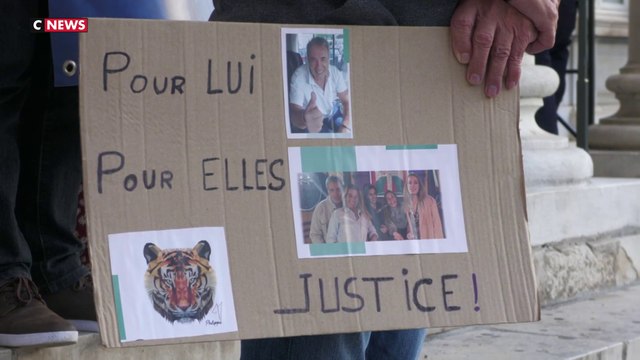 CNEWS
POUR LUI
POUR ELLES
JUSTICE !
Philippe